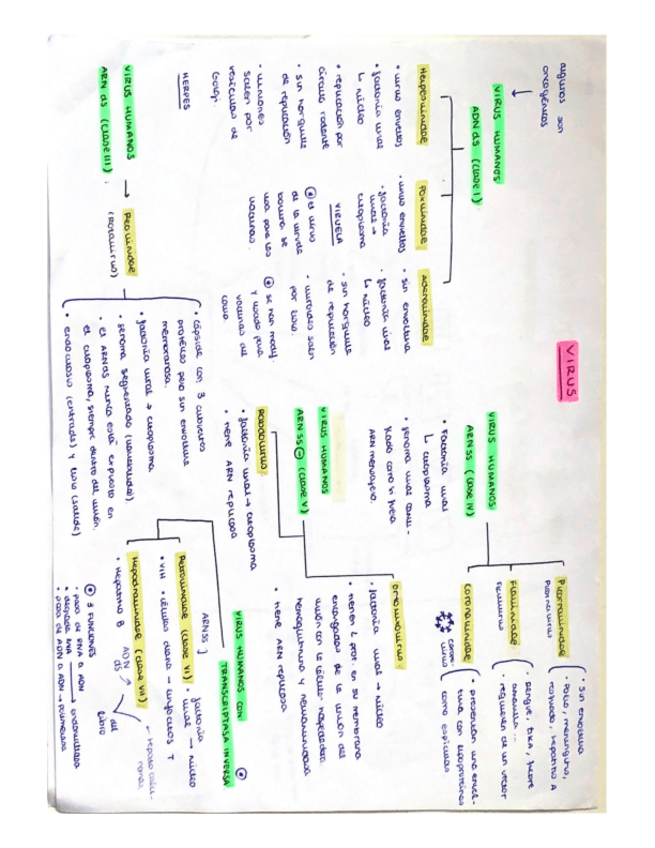 VIRUS
algunos son
oncogénicos
VIRUS HUMANOS
ADN ds (Clase I)
Herpesviridae
· virus envueltos
· factoría viral
↳ núcleo
· replicación por
círculo rodante
· sin horquilla
de replicación
· viriones
salen por
vesículas de
Golgi.
HERPES
Poxviridae
· virus envueltos
· factoría
viral →
citoplasma
VIRUELA
el virus
de la viruela
bovina se
usa para las
vacunas.
Adenoviridae
· sin envoltura
· factoría viral
↳ núcleo
· sin horquilla
de replicación
· viriones salen
por lisis.
se han modif.
y usado para
vacunas del
covid
VIRUS HUMANOS
ARN ds (Clase III)
→ Reoviridae
(Rotavirus)
· cápside con 3 cubiertas
proteicas pero sin envoltura
membranosa.
· factoría viral → citoplasma
· genoma segmentado
· el ARNds nunca está expuesto en
el citoplasma, siempre dentro del virión.
· endocitosis (entrada) y lisis (salida)
VIRUS HUMANOS
ARN ss (Clase IV)
· Factoría viral
↳ citoplasma
· genoma viral
como si fuera
ARN mensajero.
Picornaviridae
Picornavirus
· sin envoltura
· Polio, meningitis,
resfriado, hepatitis A
Flaviviridae
Flavivirus
· dengue, zika, fiebre
amarilla...
· requieren de un vector
Coronaviridae
corona-
virus
· presentan una envol-
tura con glicoproteínas
como espículas
VIRUS HUMANOS
ARN ss ⊖ (Clase V)
Rabdovirus
· factoría viral → citoplasma
· tiene ARN replicasa
Ortomixovirus
· factoría viral → núcleo
· tienen 2 prot. en su membrana
encargadas de la unión del
virión con la célula hospedadora.
hemaglutinina y neuraminidasa
· tiene ARN replicasa
VIRUS HUMANOS CON
TRANSCRIPTASA INVERSA
ARNss
Retroviridae (clase VI)
· factoría
viral → núcleo
· VIH · células diana → linfocitos T
Hepadnaviridae (clase VII)
· Hepatitis B
ADN
ds
3 FUNCIONES
· pasa de RNA a ADN
· degrada RNA
· pasa de ADN a ADN → polimerasa